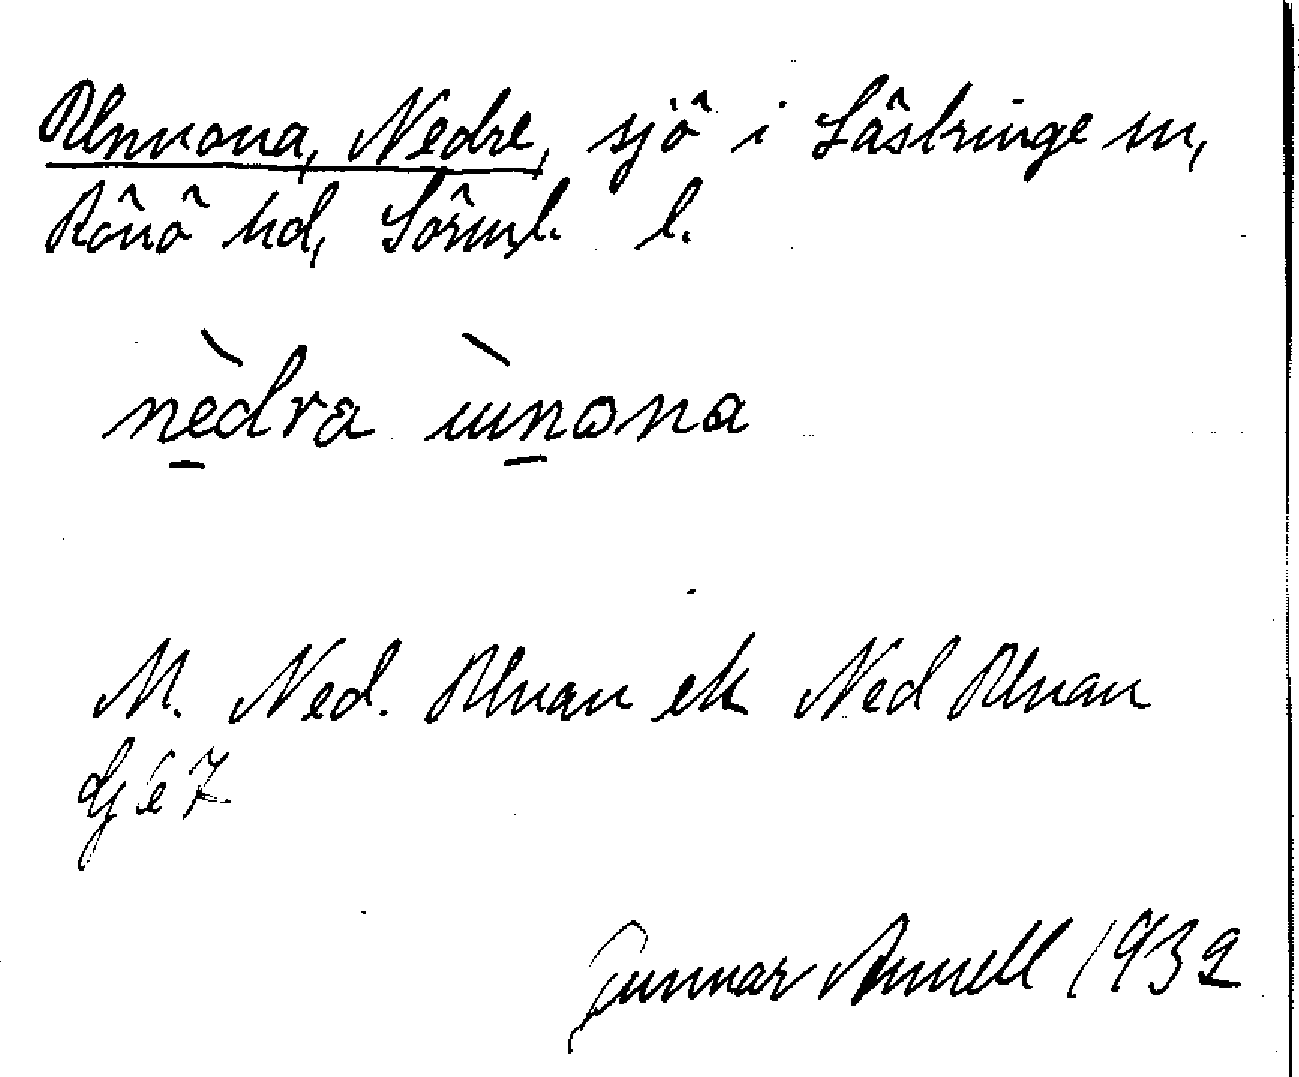 Unnona, Nedre, sjö i Lästringe sn,
Rönö hd, Sörml. l.
nèdra ùnona
M. Ned. Unan ek Ned Unan
Dj e 7
Gunnar Annell 1932